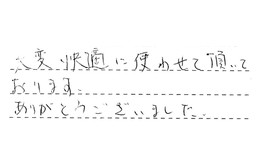 大変快適に使わせて頂いて
おります.
ありがとうございました.